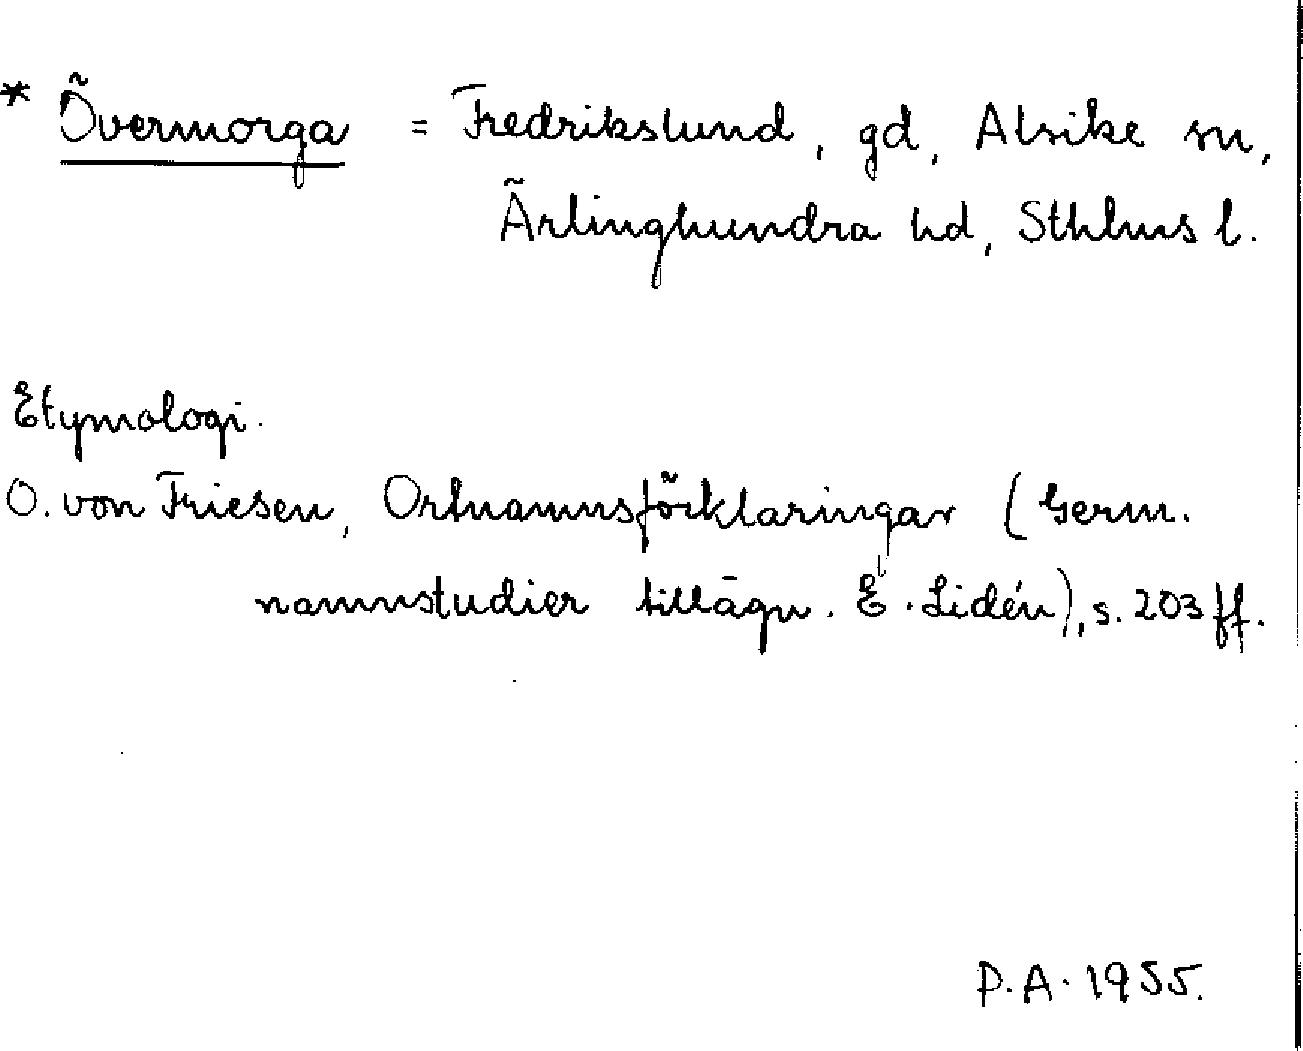 * Övermorga = Fredrikslund, gd, Alsike sn,
Ärlinghundra hd, Sthlms l.
Etymologi.
O. von Friesen, Ortnamnsförklaringar (Germ.
namnstudier tillägn. E. Lidén), s. 203 ff.
P.A. 1955.